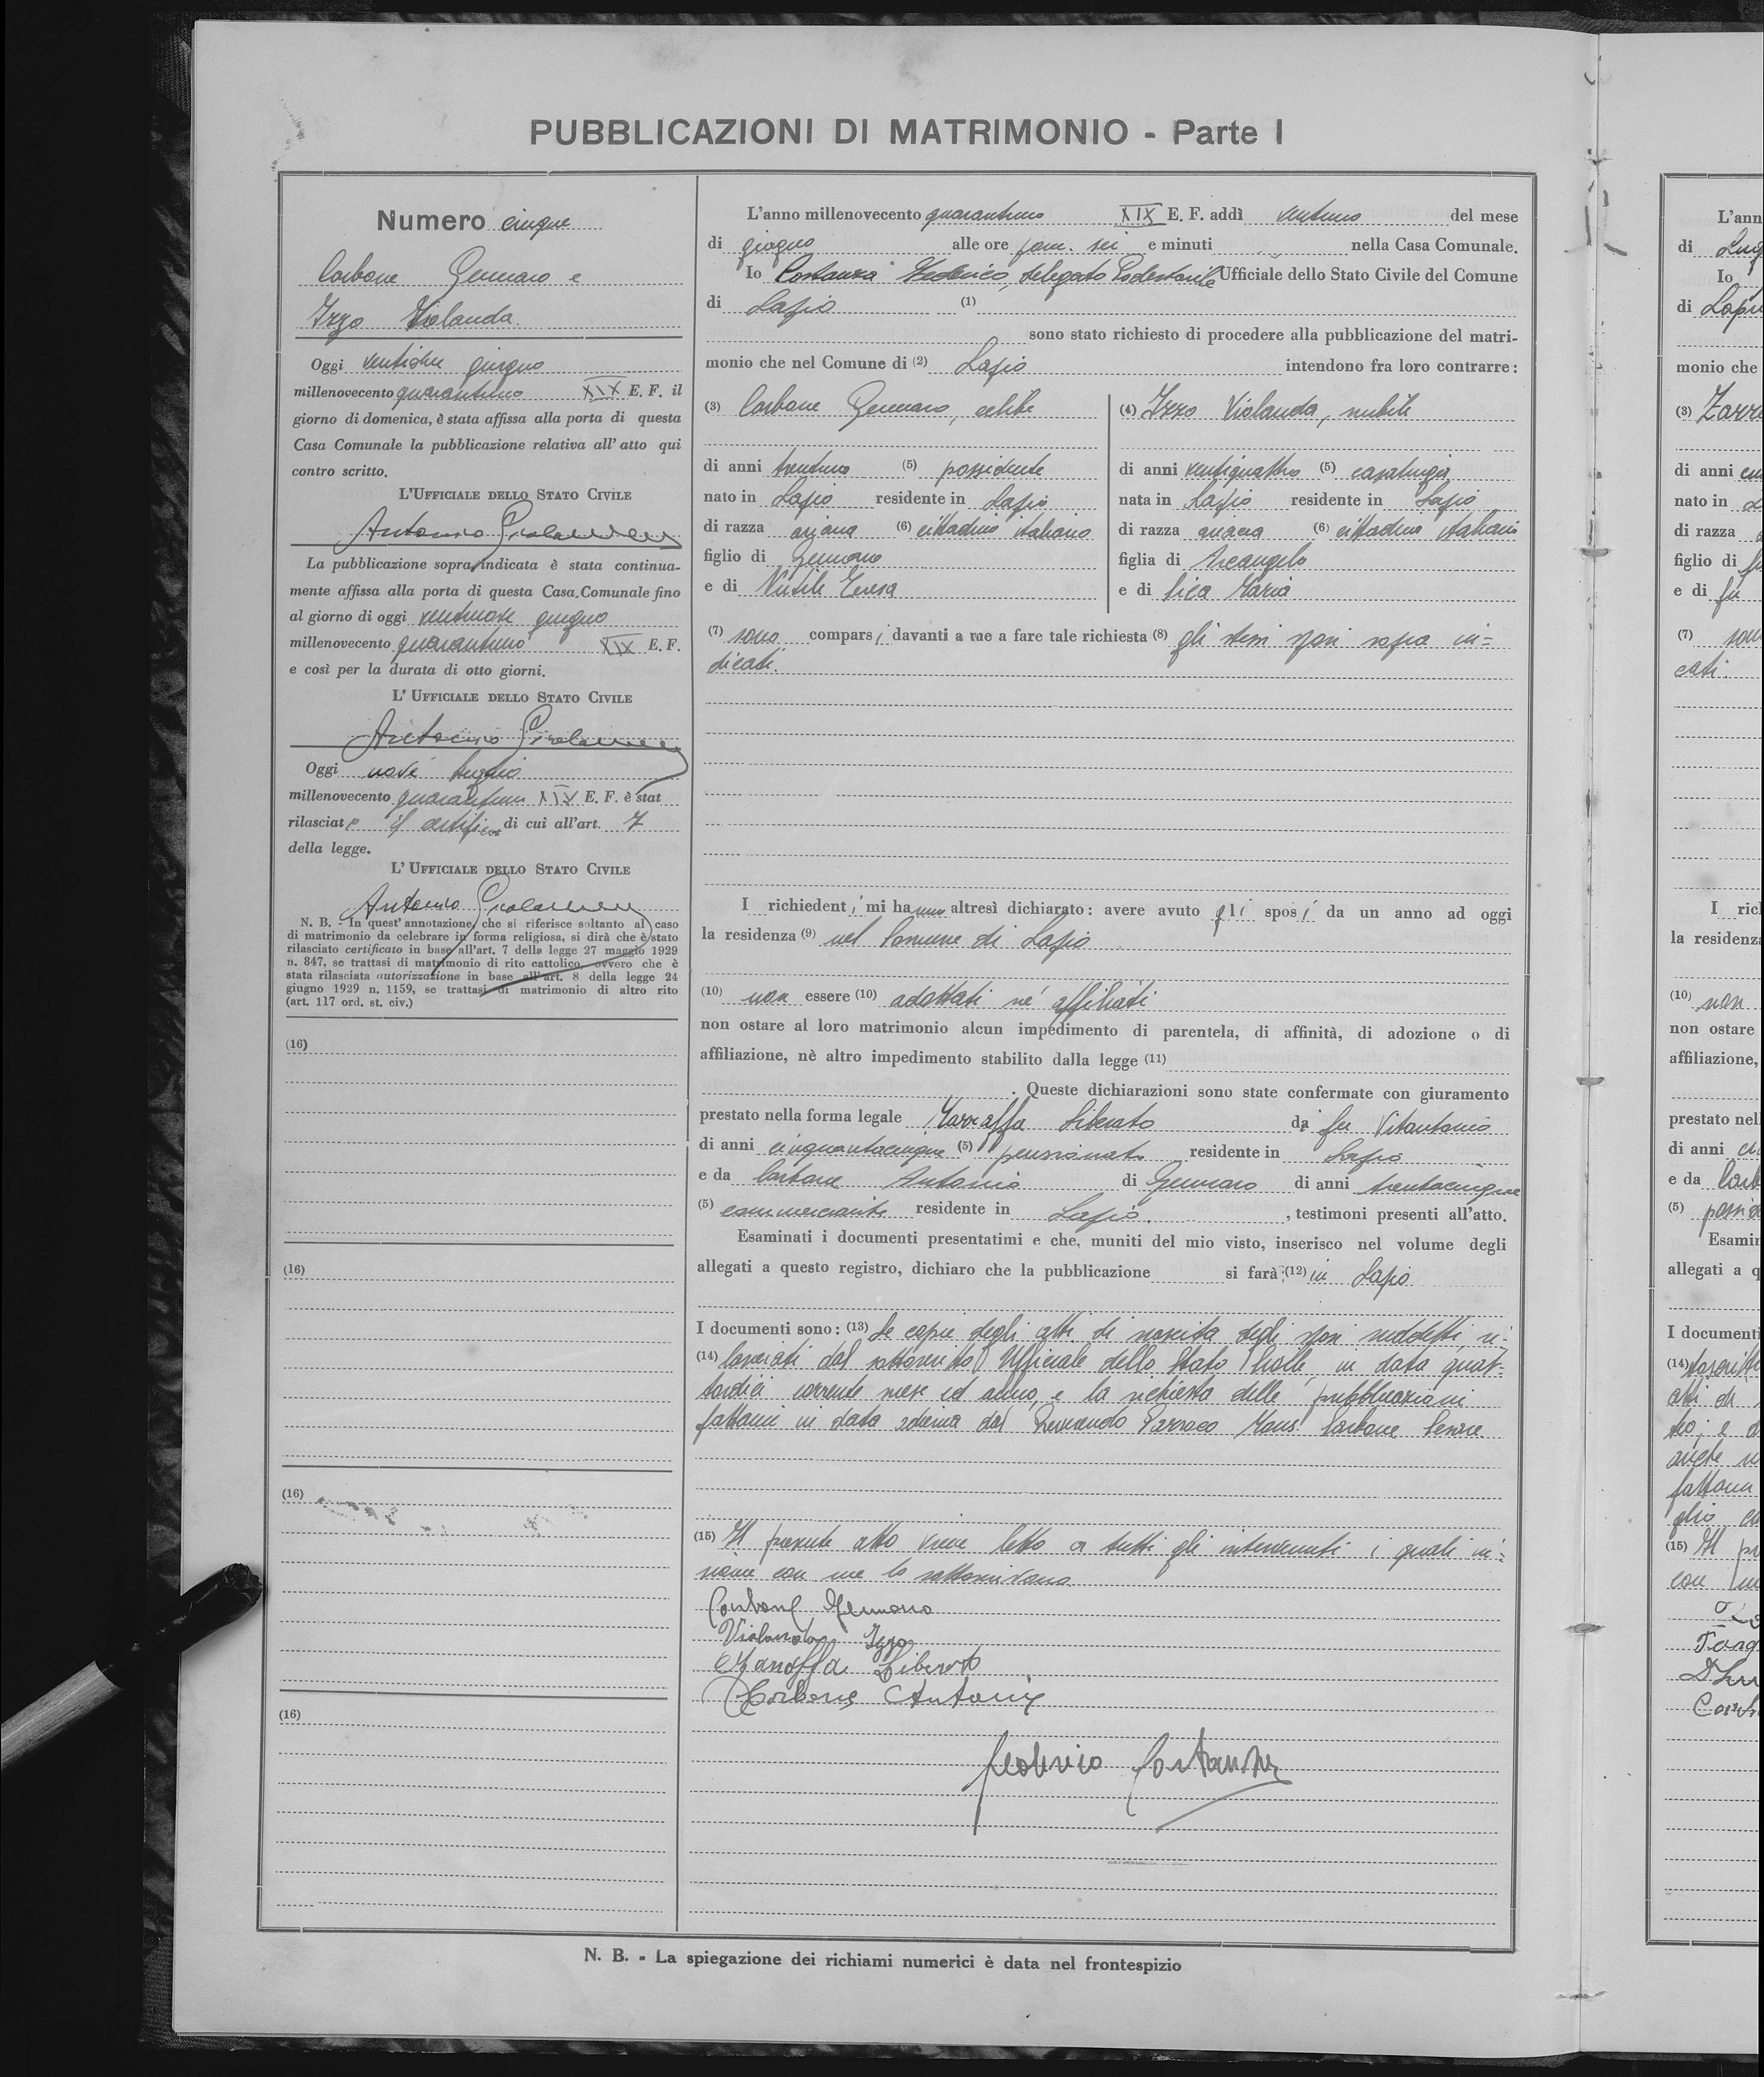 PUBBLICAZIONI DI MATRIMONIO - Parte I
Numero cinque
Carbone Gennaro e
Izzo Violanda
Oggi ventidue giugno
millenovecento quarantuno XIX E. F. il
giorno di domenica, è stata affissa alla porta di questa
Casa Comunale la pubblicazione relativa all'atto qui
contro scritto.
L'UFFICIALE DELLO STATO CIVILE
Antonio
La pubblicazione sopra indicata è stata continua-
mente affissa alla porta di questa Casa Comunale fino
al giorno di oggi ventinove giugno
millenovecento quarantuno XIX E. F.
e così per la durata di otto giorni.
L'UFFICIALE DELLO STATO CIVILE
Antonio
Oggi nove luglio
millenovecento quarantuno XIX E. F. è stat
rilasciato il certificato di cui all'art. 7
della legge.
L'UFFICIALE DELLO STATO CIVILE
Antonio
N. B. - In quest'annotazione, che si riferisce soltanto al caso
di matrimonio da celebrare in forma religiosa, si dirà che è stato
rilasciato certificato in base all'art. 7 della legge 27 maggio 1929
n. 847, se trattasi di matrimonio di rito cattolico, ovvero che è
stata rilasciata autorizzazione in base all'art. 8 della legge 24
giugno 1929 n. 1159, se trattasi di matrimonio di altro rito
(art. 117 ord. st. civ.)
(16)
(16)
(16)
(16)
L'anno millenovecento quarantuno XIX E. F. addì ventuno del mese
di giugno alle ore pom. sei e minuti nella Casa Comunale.
Io Costanza Federico, delegato Podestarile Ufficiale dello Stato Civile del Comune
di Lapio (1)
sono stato richiesto di procedere alla pubblicazione del matri-
monio che nel Comune di (2) Lapio intendono fra loro contrarre:
(3) Carbone Gennaro, celibe
di anni trentuno (5) possidente
nato in Lapio residente in Lapio
di razza ariana (6) cittadino italiano
figlio di Gennaro
e di Nutile Teresa
(4) Izzo Violanda, nubile
di anni ventiquattro (5) casalinga
nata in Lapio residente in Lapio
di razza ariana (6) cittadina italiana
figlia di Arcangelo
e di Sica Maria
(7) sono comparsi davanti a me a fare tale richiesta (8) gli stessi sposi sopra in=
dicati.
I richiedenti mi hanno altresì dichiarato: avere avuto gli sposi da un anno ad oggi
la residenza (9) nel Comune di Lapio
(10) non essere (10) adottati nè affiliati
non ostare al loro matrimonio alcun impedimento di parentela, di affinità, di adozione o di
affiliazione, nè altro impedimento stabilito dalla legge (11)
. Queste dichiarazioni sono state confermate con giuramento
prestato nella forma legale Liberato da fu Vitantonio
di anni cinquantacinque (5) pensionato residente in Lapio
e da Carbone Antonio di Gennaro di anni trentacinque
(5) commerciante residente in Lapio. , testimoni presenti all'atto.
Esaminati i documenti presentatimi e che, muniti del mio visto, inserisco nel volume degli
allegati a questo registro, dichiaro che la pubblicazione si farà (12) in Lapio
I documenti sono: (13) Le copie degli atti di nascita degli sposi suddetti, ri-
(14) lasciati dal sottoscritto Ufficiale dello Stato Civile in data quat-
tordici corrente mese ed anno, e la richiesta delle pubblicazioni
fattami in data odierna dal Reverendo Parroco Mons. Carbone
(15) Il presente atto viene letto a tutti gli intervenuti i quali in-
sieme con me lo sottoscrivono
Carbone Gennaro
Violanda Izzo
Liberato
Carbone Antonio
Federico Costanza
N. B. - La spiegazione dei richiami numerici è data nel frontespizio
L'ann
di Lug
Io
di Lapio
monio che
(3) Zarr
di anni
nato in L
di razza
figlio di fu
e di fu
(7) son
cati.
I ric
la residenz
(10) non
non ostare
affiliazione,
prestato nel
di anni
e da Carb
(5) possid
Esamin
allegati a q
I document
(14)
atti di
anche
fattami
(15) Il pr
con